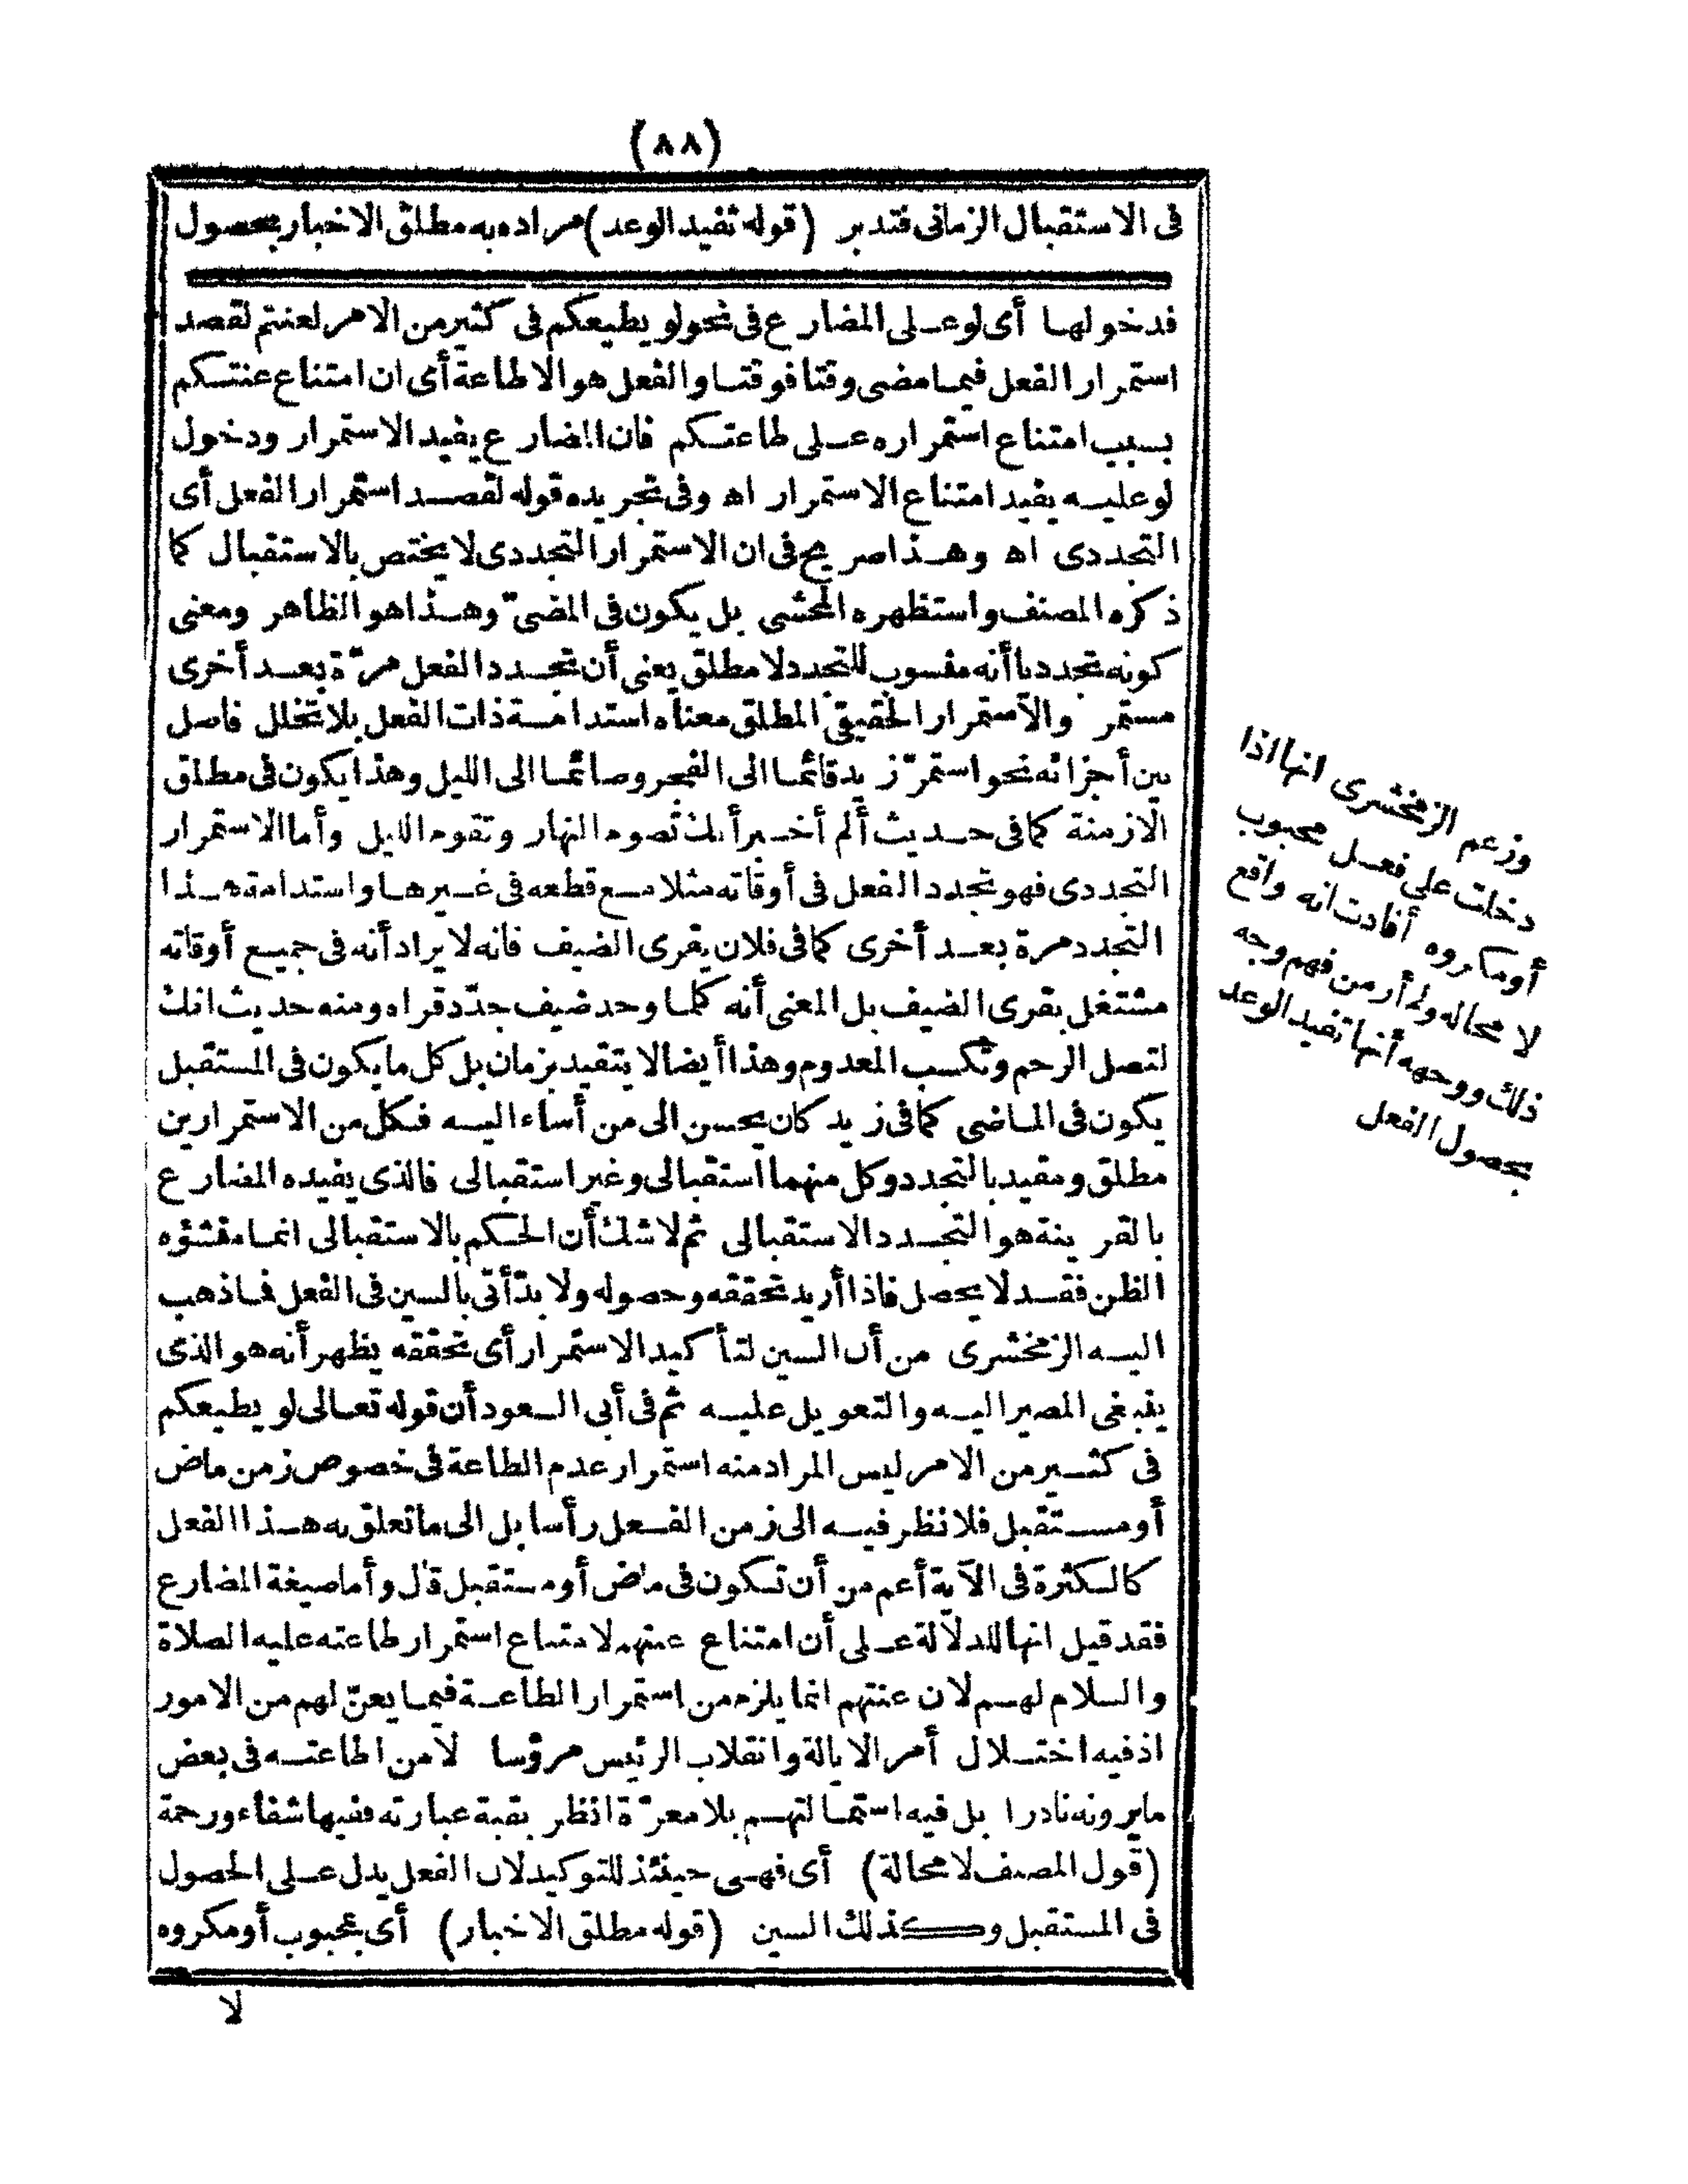 (٨٨)
فى الاستقبال الزمانى فتدبر (قوله تفيد الوعد) مراده به مطلق الاخبار بحصول
فدخولها أى لو على المضارع فى نحو لو يطيعكم فى كثير من الامر لعنتم لقصد
استمرار الفعل فيما مضى وقتا فوقتا والفعل هو الاطاعة أى ان امتناع عنتكم
بسبب امتناع استمراره على طاعتكم فان المضارع يفيد الاستمرار ودخول
لو عليه يفيد امتناع الاستمرار اه وفى تجريده قوله لقصد استمرار الفعل أى
التجددى اه وهذا صريح فى ان الاستمرار التجددى لا يختص بالاستقبال كما
ذكره المصنف واستظهره المحشى بل يكون فى المضىّ وهذا هو الظاهر ومعنى
كونه تجدديا أنه منسوب للتجدد لا مطلق يعنى أن تجدد الفعل مرّة بعد أخرى
مستمر والاستمرار الحقيقى المطلق معناه استدامة ذات الفعل بلا تخلل فاصل
بين أجزائه نحو استمرّ زيد قائما الى الفجر وصائما الى الليل وهذا يكون فى مطلق
الازمنة كما فى حديث ألم أخبر أنك تصوم النهار وتقوم الليل وأما الاستمرار
التجددى فهو تجدد الفعل فى أوقاته مثلا مع قطعه فى غيرها واستدامة هذا
التجدد مرة بعد أخرى كما فى فلان يقرى الضيف فانه لا يراد أنه فى جميع أوقاته
مشتغل بقرى الضيف بل المعنى أنه كلما وجد ضيف جدّد قراه ومنه حديث انك
لتصل الرحم وتكسب المعدوم وهذا أيضا لا يتقيد بزمان بل كل ما يكون فى المستقبل
يكون فى الماضى كما فى زيد كان يحسن الى من أساء اليه فكل من الاستمرارين
مطلق ومقيد بالتجدد وكل منهما استقبالى وغير استقبالى فالذى يفيده المضارع
بالقرينة هو التجدد الاستقبالى ثم لا شك أن الحكم بالاستقبالى انما منشؤه
الظن فقد لا يحصل فاذا أريد تحققه وحصوله ولا بدّ أتى بالسين فى الفعل فما ذهب
اليه الزمخشرى من أن السين لتأكيد الاستمرار أى تحققه يظهر أنه هو الذى
ينبغى المصير اليه والتعويل عليه ثم فى أبى السعود أن قوله تعالى لو يطيعكم
فى كثير من الامر ليس المراد منه استمرار عدم الطاعة فى خصوص زمن ماض
أو مستقبل فلا نظر فيه الى زمن الفعل رأسا بل الى ما تعلق به هذا الفعل
كالكثرة فى الآية أعم من أن تكون فى ماض أو مستقبل قال وأما صيغة المضارع
فقد قيل انها للدلالة على أن امتناع عنتهم لامتناع استمرار طاعته عليه الصلاة
والسلام لهم لان عنتهم انما يلزم من استمرار الطاعة فيما يعنّ لهم من الامور
اذ فيه اختلال أمر الايالة وانقلاب الرئيس مرؤسا لا من اطاعته فى بعض
ما يرونه نادرا بل فيه استمالتهم بلا معرّة انظر بقية عبارته ففيها شفاء ورحمة
(قول المصنف لا محالة) أى فهى حينئذ للتوكيد لان الفعل يدل على الحصول
فى المستقبل وكذلك السين (قوله مطلق الاخبار) أى بمحبوب أو مكروه
لا
وزعم الزمخشرى انها اذا
دخلت على فعل محبوب
أو مكروه أفادت انه واقع
لا محاله ولم أر من فهم وجه
ذلك ووجهه أنها تفيد الوعد
بحصول الفعل